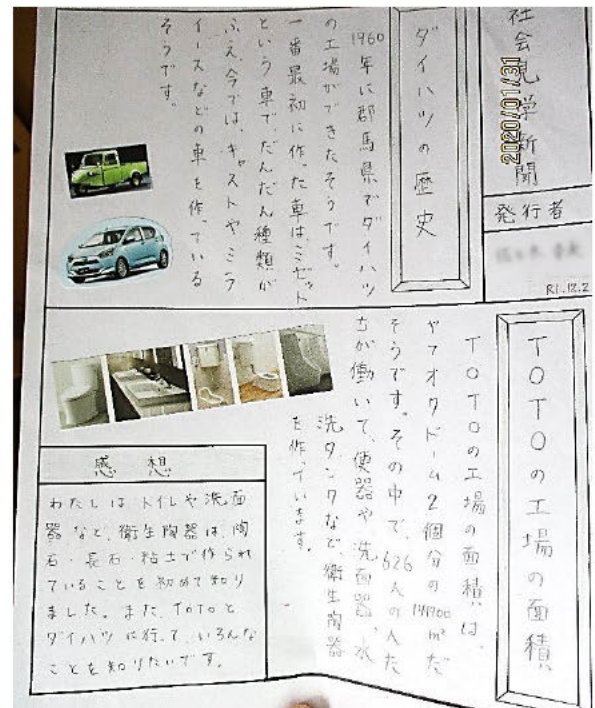 社会見学新聞
2020/01/31
発行者
R1.12.2
ダイハツの歴史
1960年に郡馬県でダイハツ
の工場ができたそうです。
一番最初に作った車は、ミゼット
という車で、だんだん種類が
ふえ、今では、キャストやミラ
イースなどの車を作っている
そうです。
TOTOの工場の面積
TOTOの工場の面積は、
ヤフオクドーム2個分の141900m²だ
そうです。その中で、626人の人た
ちが働いて、便器や洗面器、水
洗タンクなど、衛生陶器
を作っています。
感想
わたしは、トイレや洗面
器など、衛生陶器は、陶
石・長石・粘土で作られ
ていることを初めて知り
ました。また、TOTOと
ダイハツに行って、いろんな
ことを知りたいです。